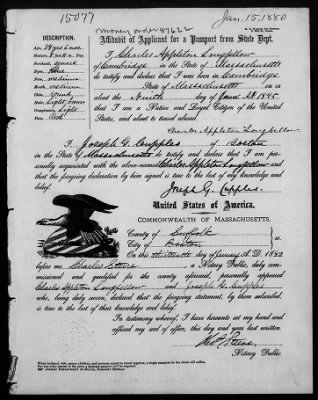 15077
Money order 87622
Jan. 15. 1880
Affidavit of Applicant for a Passport from State Dept.
I Charles Appleton Longfellow
of Cambridge in the State of Massachusetts
do testify and declare that I was born in Cambridge
State of Massachusetts on or
about the Ninth day of June A.D. 1845
that I am a Native and Loyal Citizen of the United
States, and about to travel abroad.
Charles Appleton Longfellow.
I, Joseph G. Cupples of Boston
State of Massachusetts do testify and declare that I am per-
sonally acquainted with the above-named Charles Appleton Longfellow and
that the foregoing declaration by him signed is true to the best of my knowledge and
belief.
Joseph G. Cupples.
United States of America.
COMMONWEALTH OF MASSACHUSETTS.
County of Suffolk
City of Boston
On this thirteenth day of January A. D. 1880
before me, Charles a Notary Public, duly com-
missioned and qualified for the county aforesaid, personally appeared
Charles Appleton Longfellow and Joseph G. Cupples
who, being duly sworn, declared that the foregoing statement, by them subscribed,
is true to the best of their knowledge and belief.
In testimony whereof, I have hereunto set my hand and
affixed my seal of office, this day and year last written.
Notary Public